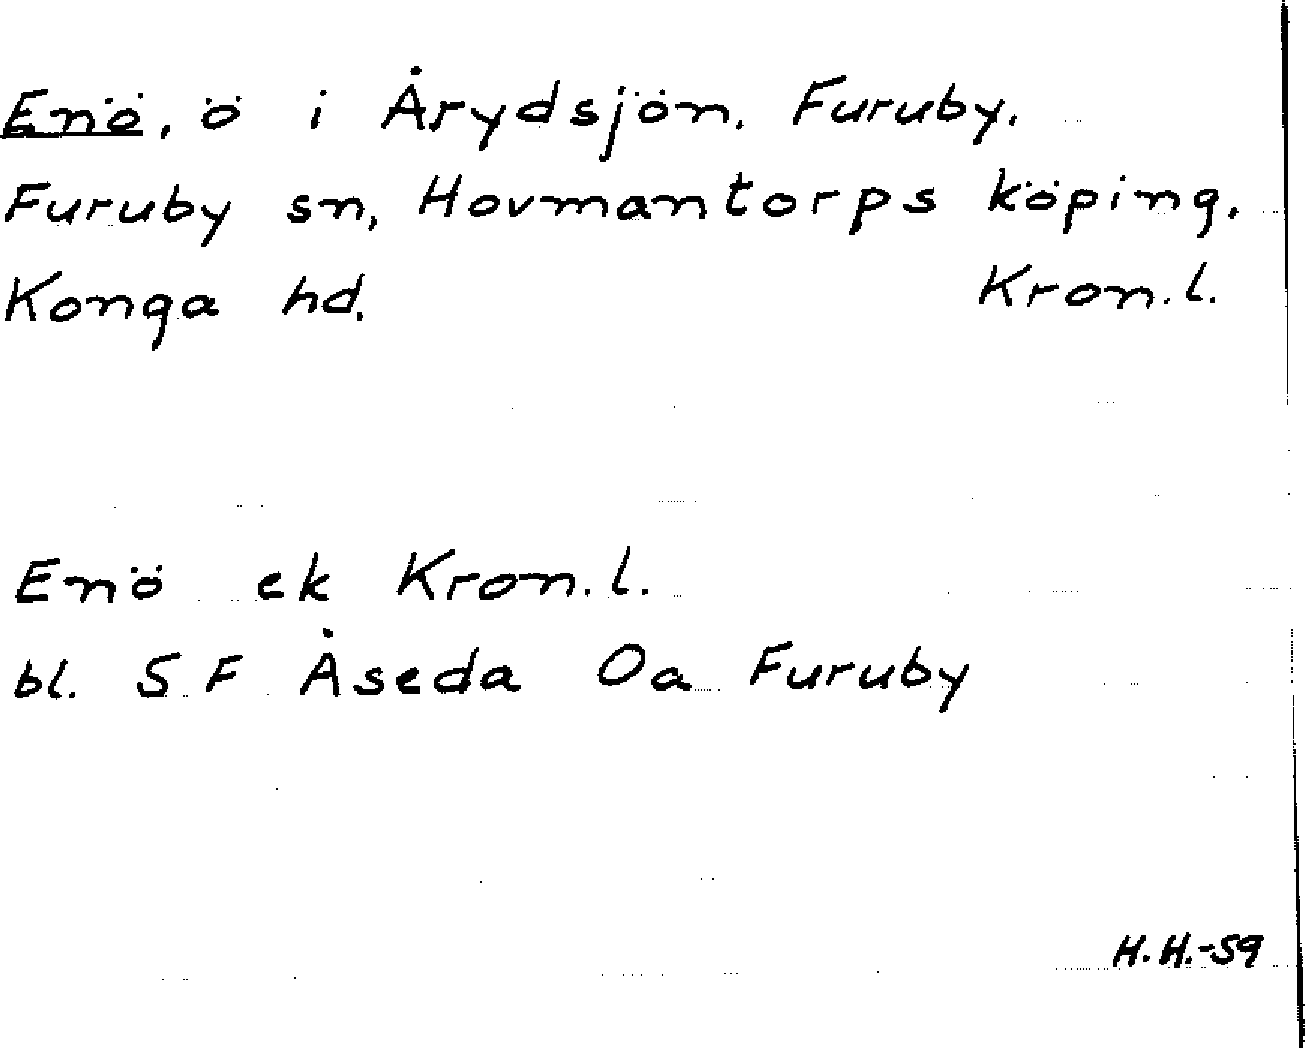 Enö, ö i Årydsjön. Furuby.
Furuby sn, Hovmantorps köping.
Konga hd. Kron.l.
Enö ek Kron.l.
bl. S F Åseda Oa Furuby
H.H.-59